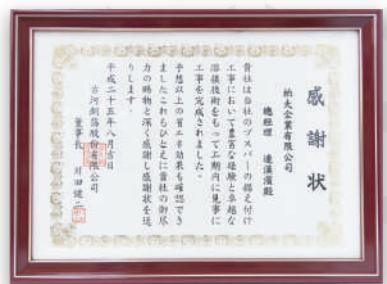 感謝状
柏夫企業有限公司
總經理 連漢濱殿
貴社は当社のブスバーの据え付け
工事において豊富な経験と卓越な
溶接技術をもって工期内に見事に
工事を完成されました。
予想以上の省エネ効果も確認でき
ましたこれもひとえに貴社の御尽
力の賜物と深く感謝し感謝状を送
ります。
平成二十五年八月吉日
古河銅箔股份有限公司
董事長 川田健二